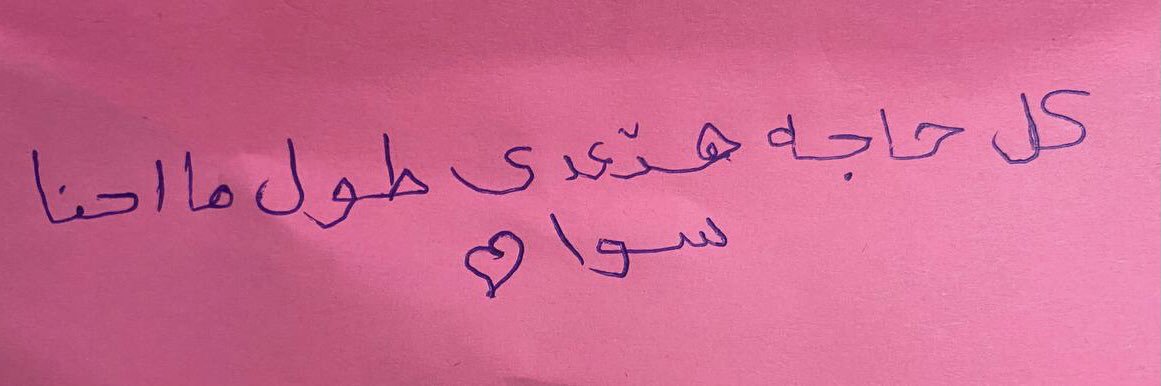 كل حاجه هتعدى طول ما احنا
سوا ♡